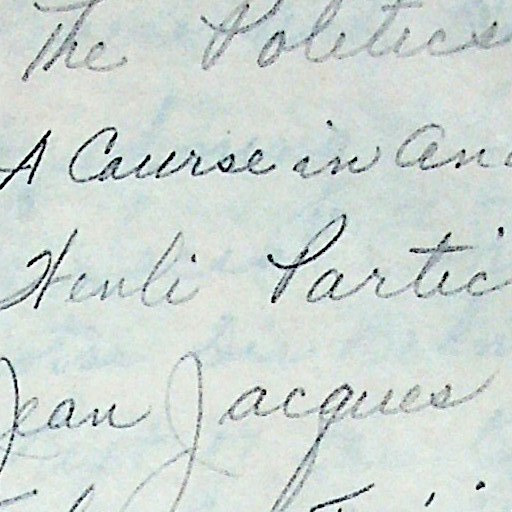 The Politics
A Course in
Henli Partic
Jean Jacques